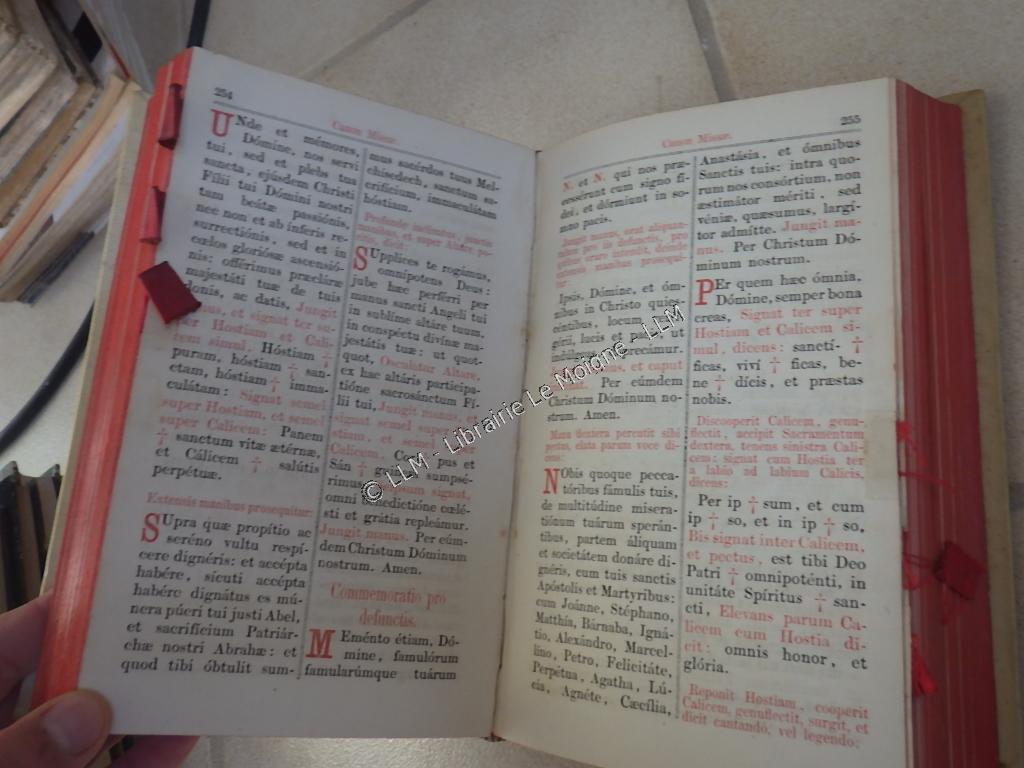 254
Canon Missæ.
UNde et mémores,
Dómine, nos servi
tui, sed et plebs tua
sancta, ejúsdem Christi
Fílii tui Dómini nostri
tam beátæ passiónis,
nec non et ab ínferis re-
surrectiónis, sed et in
cœlos gloriósæ ascensió-
nis: offérimus præcláræ
majestáti tuæ de tuis
donis, ac datis, Jungit
manus, et signat ter su-
per Hostiam et Cali-
cem simul. Hóstiam †
puram, hóstiam † san-
ctam, hóstiam † imma-
culátam: Signat semel
super Hostiam, et semel
super Calicem: Panem
† sanctum vitæ ætérnæ,
et Cálicem † salútis
perpétuæ.
Extensis manibus prosequitur:
SUpra quæ propítio ac
seréno vultu respí-
cere dignéris: et accépta
habére, sícuti accépta
habére dignátus es mú-
nera púeri tui justi Abel,
et sacrifícium Patriár-
chæ nostri Abrahæ: et
quod tibi óbtulit sum-
mus sacérdos tuus Mel-
chísedech, sanctum sa-
crifícium, immaculátam
hóstiam.
Profunde inclinatus, junctis
manibus, et super Altare po-
sitis, dicit:
SUpplices te rogámus,
omnípotens Deus:
jube hæc perférri per
manus sancti Angeli tui
in sublíme altáre tuum,
in conspéctu divínæ ma-
jestátis tuæ: ut quot-
quot, Osculatur Altare,
ex hac altáris participa-
tióne sacrosánctum Fí-
lii tui, Jungit manus, et
signat semel super
Hostiam, et semel super
Calicem, Cor pus et
Sán † guinem sumpsé-
rimus, Seipsum signat,
omni benedictióne cœlé-
sti et grátia repleámur.
Jungit manus. Per eúm-
dem Christum Dóminum
nostrum. Amen.
Commemoratio pro
defunctis.
MEménto étiam, Dó-
mine, famulórum
famularúmque tuárum
255
Canon Missæ.
N. et N. qui nos præ-
cessérunt cum signo fí-
dei, et dórmiunt in so-
mno pacis.
Jungit manus, orat aliquan-
tulum pro iis defunctis, pro
quibus orare intendit, deinde
extensis manibus prosequi-
tur:
Ipsis, Dómine, et óm-
nibus in Christo quies-
céntibus, locum refri-
gérii, lucis et pacis, ut
indúlgeas, deprecámur.
Jungit manus, et caput
inclinat. Per eúmdem
Christum Dóminum no-
strum. Amen.
Manu dextera percutit sibi
pectus, elata parum voce di-
cens:
NObis quoque pecca-
tóribus fámulis tuis,
de multitúdine misera-
tiónum tuárum sperán-
tibus, partem áliquam
et societátem donáre di-
gnéris, cum tuis sanctis
Apóstolis et Martyribus:
cum Joánne, Stéphano,
Matthía, Bárnaba, Igná-
tio, Alexándro, Marcel-
líno, Petro, Felicitáte,
Perpétua, Agatha, Lú-
cia, Agnéte, Cæcília,
Anastásia, et ómnibus
Sanctis tuis: intra quo-
rum nos consórtium, non
æstimátor mériti, sed
véniæ, quæsumus, largí-
tor admítte. Jungit ma-
nus. Per Christum Dó-
minum nostrum.
PEr quem hæc ómnia,
Dómine, semper bona
creas, Signat ter super
Hostiam et Calicem si-
mul, dicens: sanctí- †
ficas, viví † ficas, be-
ne † dícis, et præstas
nobis.
Discooperit Calicem, genu-
flectit, accipit Sacramentum
dextera, tenens sinistra Cali-
cem: signat cum Hostia ter
a labio ad labium Calicis,
dicens:
Per ip † sum, et cum
ip † so, et in ip † so.
Bis signat inter Calicem,
et pectus, est tibi Deo
Patri † omnipoténti, in
unitáte Spíritus † san-
cti, Elevans parum Ca-
licem cum Hostia di-
cit: omnis honor, et
glória.
Reponit Hostiam, cooperit
Calicem, genuflectit, surgit, et
dicit cantando, vel legendo:
© LLM - Librairie Le Moigne - LLM